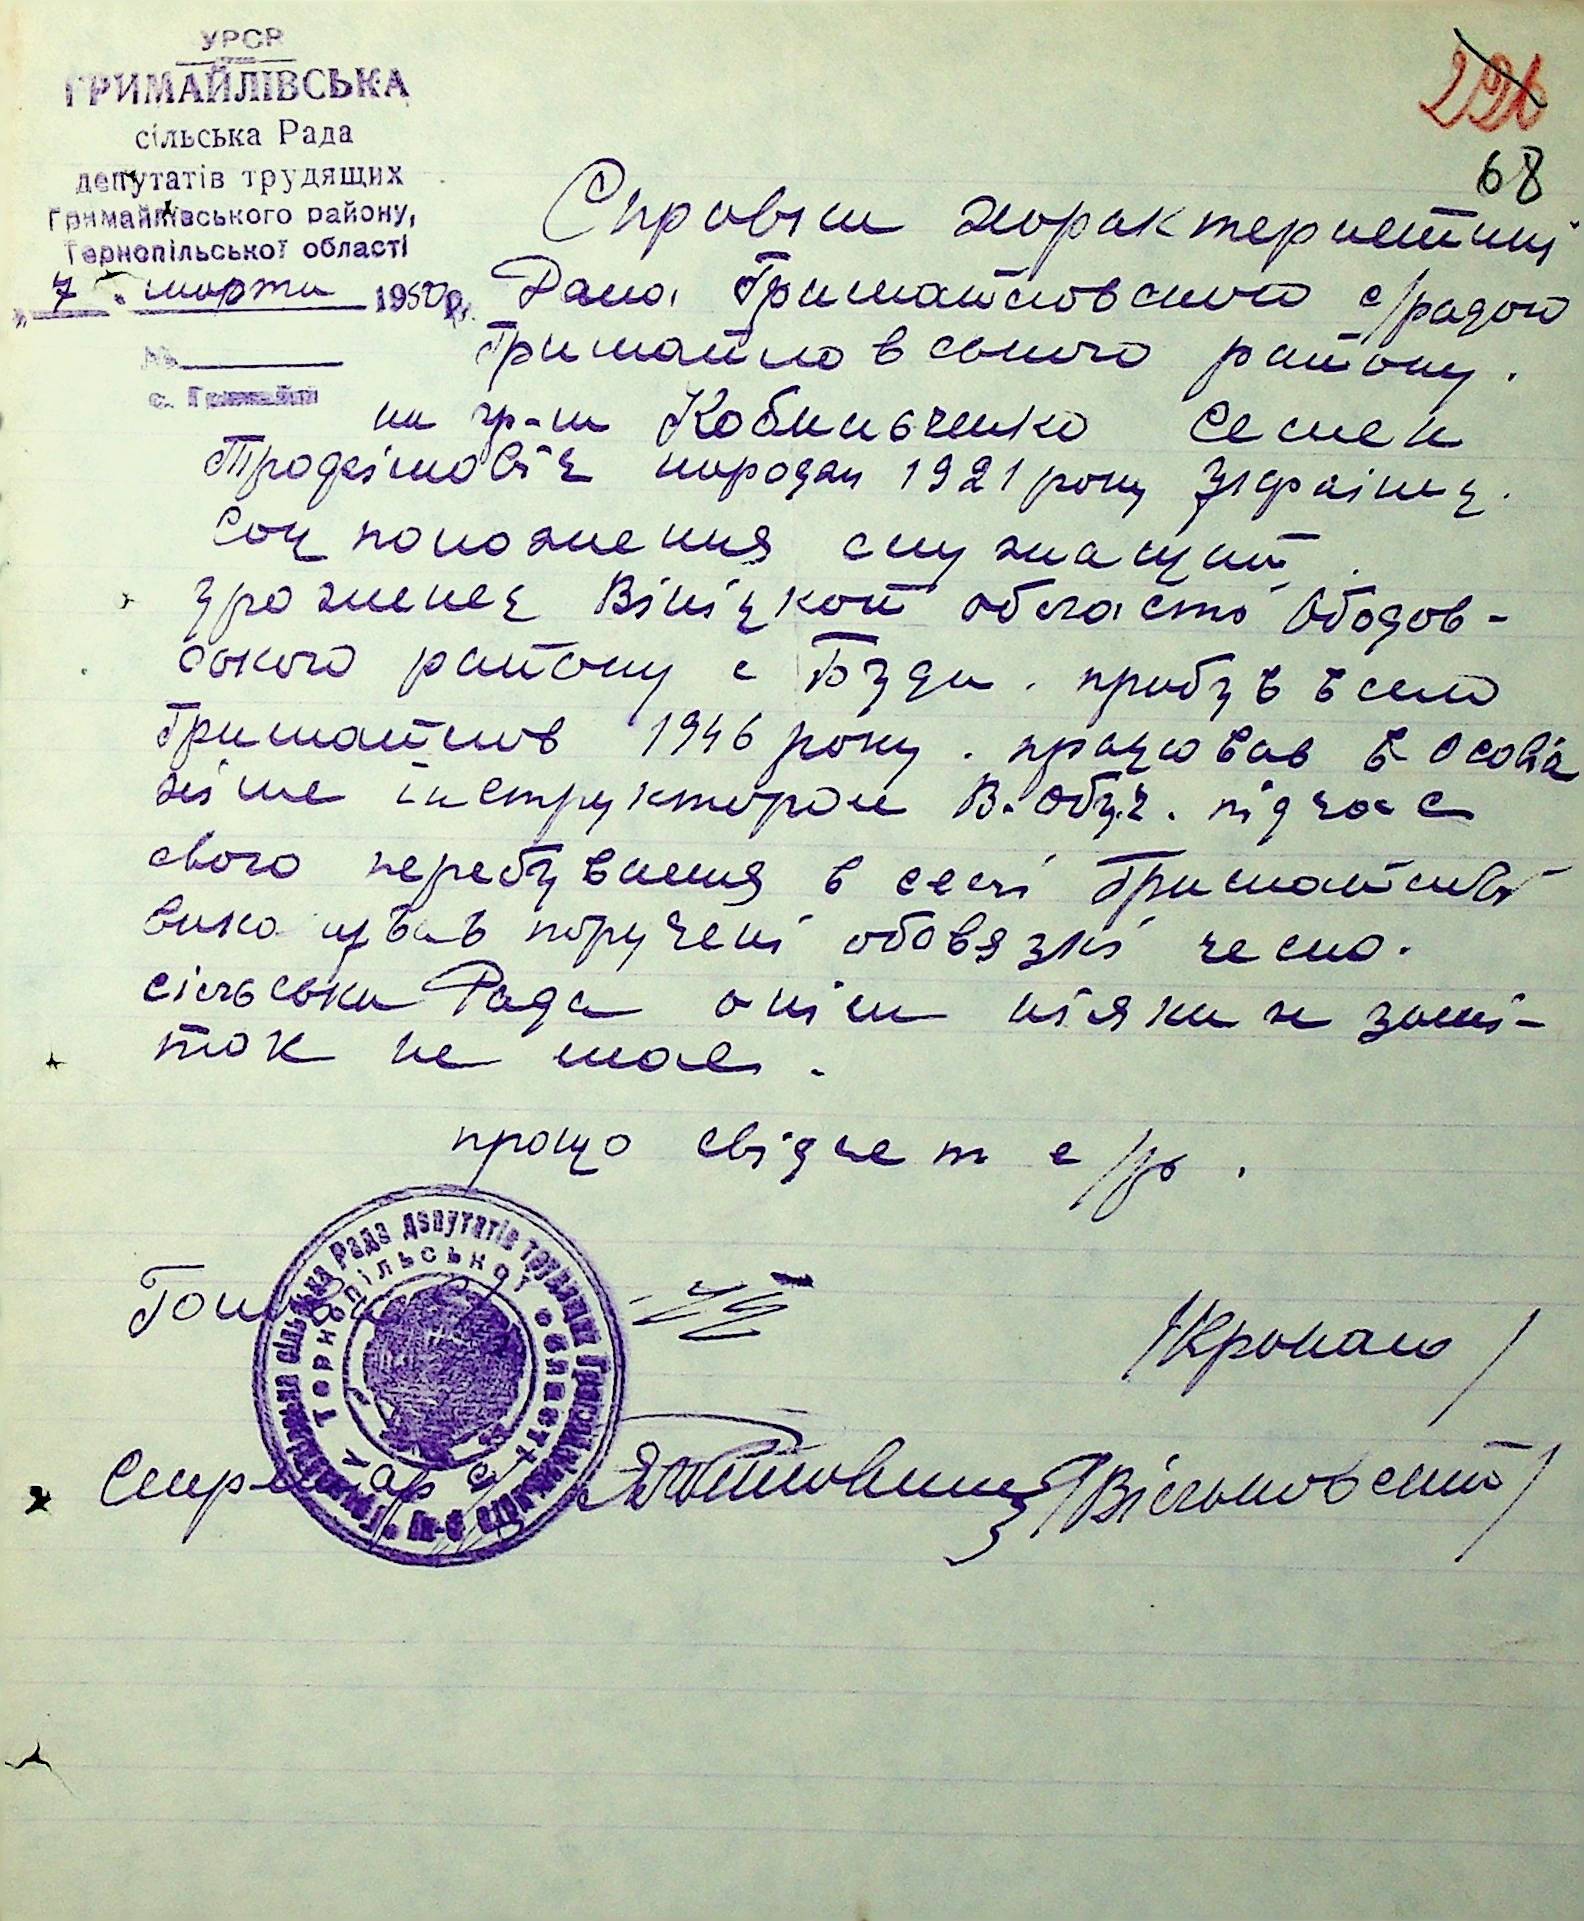 УРСР
ГРИМАЙЛІВСЬКА
сільська Рада
депутатів трудящих
Гримайлівського району,
Тернопільської області
„7" марта 1950 р.
№
с. Гримайлів
226
68
Справка характеристика
Дана Гримайловского с/радою
Гримайловського району.
на гр-на Кобильченко Семен
Трофімовіч народж 1921 року Українец.
Соц положення служащий.
уроженец Вініцкой області Ободов-
ського району с Буди. прибув в село
Гримайлов 1946 року. працював в Осовіа
хіме інструктором В. Обуч. під час
свого перебування в селі Гримайлові
виконував поручені обовязкі чесно.
сільська Рада о нім ніяких заміт-
ток не має.
прощо свідчет с/р.
Голова с/р
/Крокало/
Секретар с/р
/Вільховский/
Гримайлівська сільська Рада депутатів трудящих Гримайлівського р-ну
Тернопільської області